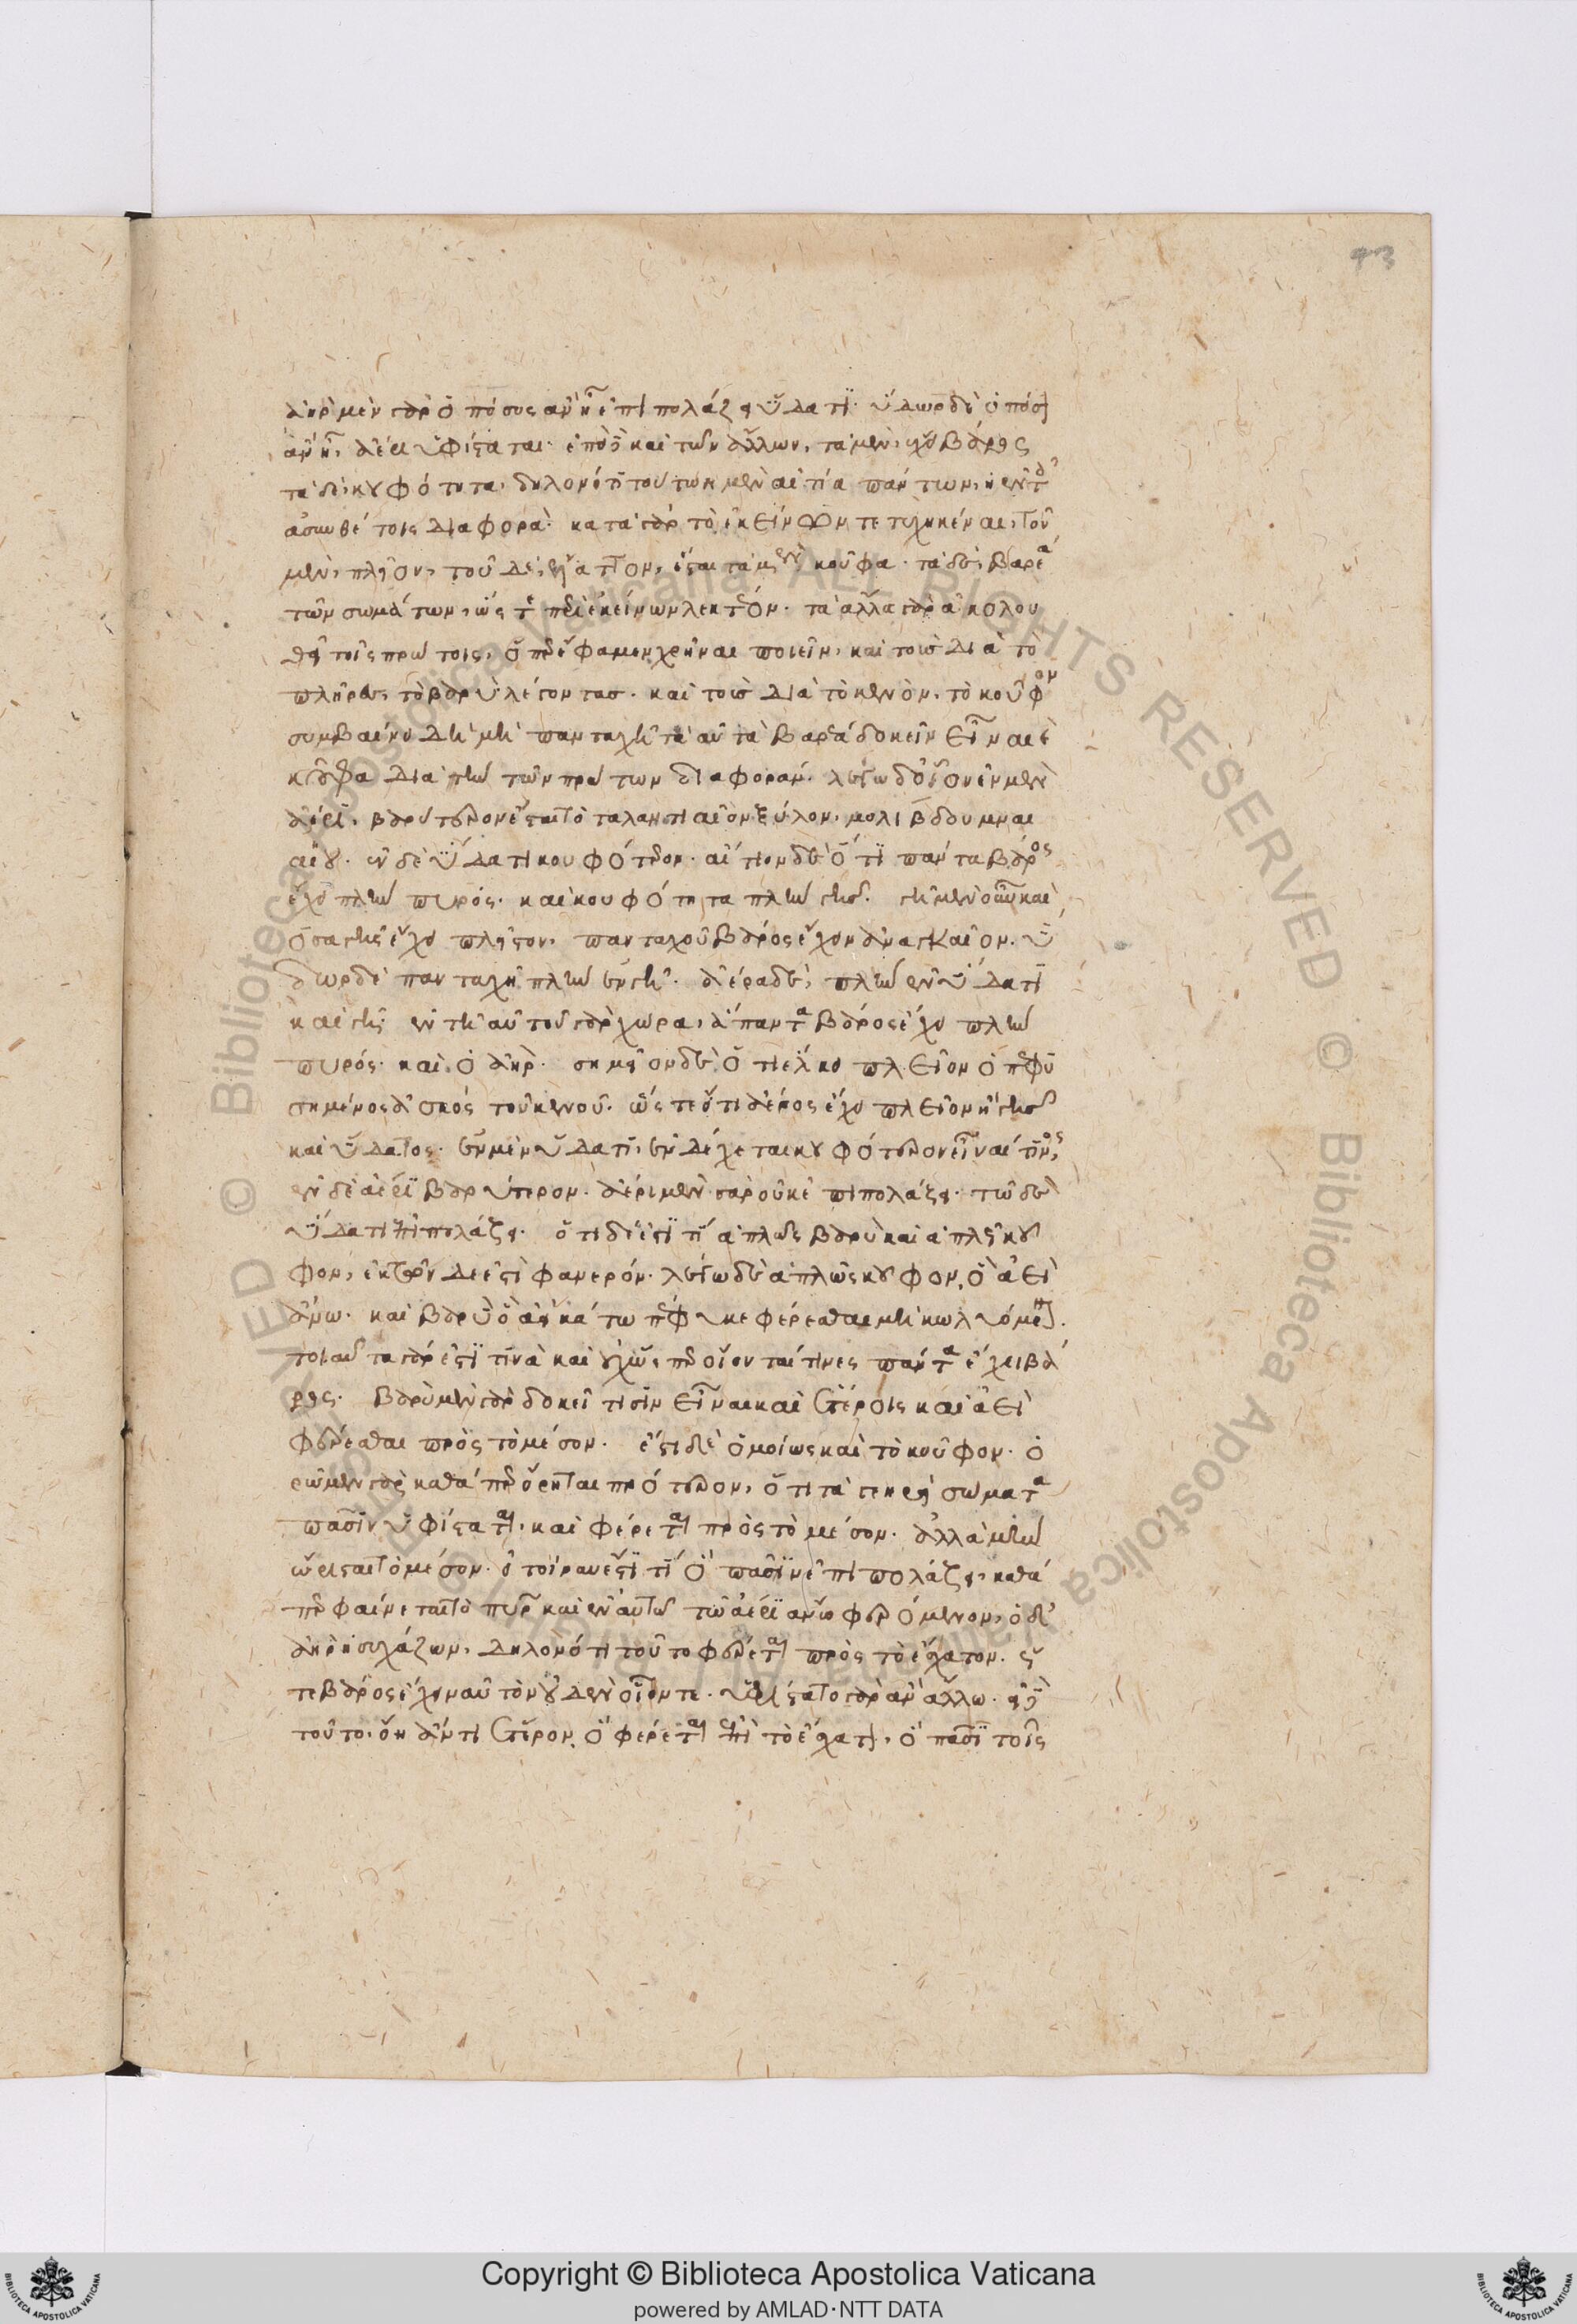 43
ἀὴρ μὲν γὰρ ὁπόσος ἂν ἦ ἐπιπολάζει ὕδατι· ὕδωρ δὲ ὁπόσον
ἂν ἦ, ἀέρι ὑφίσταται· ἐπεὶ δὲ καὶ τῶν ἄλλων, τὰ μὲν, ἔχει βάρος
τὰ δὲ, κουφότητα, δηλονότι τούτων μὲν αἰτία πάντων, ἡ ἐν τοῖς
ἀσυνθέτοις διαφορά· κατὰ γὰρ τὸ ἐκείνων τετυχηκέναι, τοῦ
μὲν, πλεῖον, τοῦ δὲ, ἔλαττον, ἔσται τὰ μὲν κοῦφα· τὰ δὲ, βαρέα
τῶν σωμάτων, ὥστε περὶ ἐκείνων λεκτέον· τὰ ἄλλα γὰρ ἀκολου
θεῖ τοῖς πρώτοις, ὅπερ ἔφαμεν χρῆναι ποιεῖν, καὶ τοὺς διὰ τὸ
πλῆρες, τὸ βαρὺ λέγοντας· καὶ τοὺς διὰ τὸ κενὸν, τὸ κοῦφον
συμβαίνει δὴ μὴ πανταχῆ τὰ αὐτὰ βαρέα δοκεῖν εἶναι καὶ
κοῦφα διὰ τὴν τῶν πρώτων διαφοράν· λέγω δ' οἷον ἐν μὲν
ἀέρι, βαρύτερον ἔσται τὸ ταλαντιαῖον ξύλον, μολίβδου μναι
αίου· ἐν δὲ ὕδατι κουφότερον· αἴτιον δὲ ὅτι πάντα βάρος
ἔχει πλὴν πυρός· καὶ κουφότητα πλὴν γῆς. γῆ μὲν οὖν καὶ
ὅσα γῆς ἔχει πλεῖστον, πανταχοῦ βάρος ἔχειν ἀναγκαῖον. ὕ
δωρ δὲ πανταχῆ πλὴν ἐν γῆ· ἀέρα δὲ, πλὴν ἐν ὕδατι
καὶ γῆ· ἐν τῆ αὐτοῦ γὰρ χώρα, ἅπαντα βάρος ἔχει πλὴν
πυρός· καὶ ὁ ἀὴρ· σημεῖον δὲ ὅτι ἕλκει πλεῖον ὁ πεφυ
σημένος ἀσκός τοῦ κενοῦ· ὥστε ὅτι ἀέρος ἔχει πλεῖον ἢ γῆς
καὶ ὕδατος· ἐν μὲν ὕδατι, ἐνδέχεται κουφότερον εἶναί τινος,
ἐν δὲ ἀέρι βαρύτερον· ἀέρι μὲν γὰρ οὐκ ἐπιπολάζει· τῶ δὲ
ὕδατι ἐπιπολάζει· ὅτι δέ ἐστί τι ἁπλῶς βαρὺ καὶ ἁπλῶς κοῦ
φον, ἐκ τῶνδέ ἐστι φανερόν· λέγω δὲ ἁπλῶς κοῦφον, ὃ ἀεὶ
ἄνω· καὶ βαρὺ ὃ ἀεὶ κάτω πέφυκε φέρεσθαι μὴ κωλυόμενον.
τοιαῦτα γάρ ἐστί τινὰ καὶ οὐχ ὥσπερ οἴονταί τινες πάντα ἔχει βά
ρος· βαρὺ μὲν γὰρ δοκεῖ τισὶν εἶναι καὶ ἑτέροις καὶ ἀεὶ
φέρεσθαι πρὸς τὸ μέσον· ἔστι δὲ ὁμοίως καὶ τὸ κοῦφον· ὁ
ρῶμεν γὰρ καθάπερ εἴρηται πρότερον, ὅτι τὰ γεηρὰ σώματα
πᾶσιν ὑφίσταται, καὶ φέρεται πρὸς τὸ μέσον· ἀλλὰ μὴν
ὥρισται τὸ μέσον· εἰ τοίνυν ἔστι τι ὃ πᾶσιν ἐπιπολάζει, καθά
περ φαίνεται τὸ πῦρ καὶ ἐν αὐτῶ τῶ ἀέρι ἄνω φερόμενον, ὁ δ'
ἀὴρ ἡσυχάζων, δηλονότι τοῦτο φέρεται πρὸς τὸ ἔσχατον· ὥς
τε βάρος ἔχειν αὐτὸ οὐδὲν οἷόν τε· ὑφίστατο γὰρ ἂν ἄλλω· εἰ δὲ
τοῦτο, εἴη ἄν τι ἕτερον ὃ φέρεται ἐπὶ τὸ ἔσχατον, ὃ πᾶσι τοῖς
Copyright © Biblioteca Apostolica Vaticana
powered by AMLAD·NTT DATA